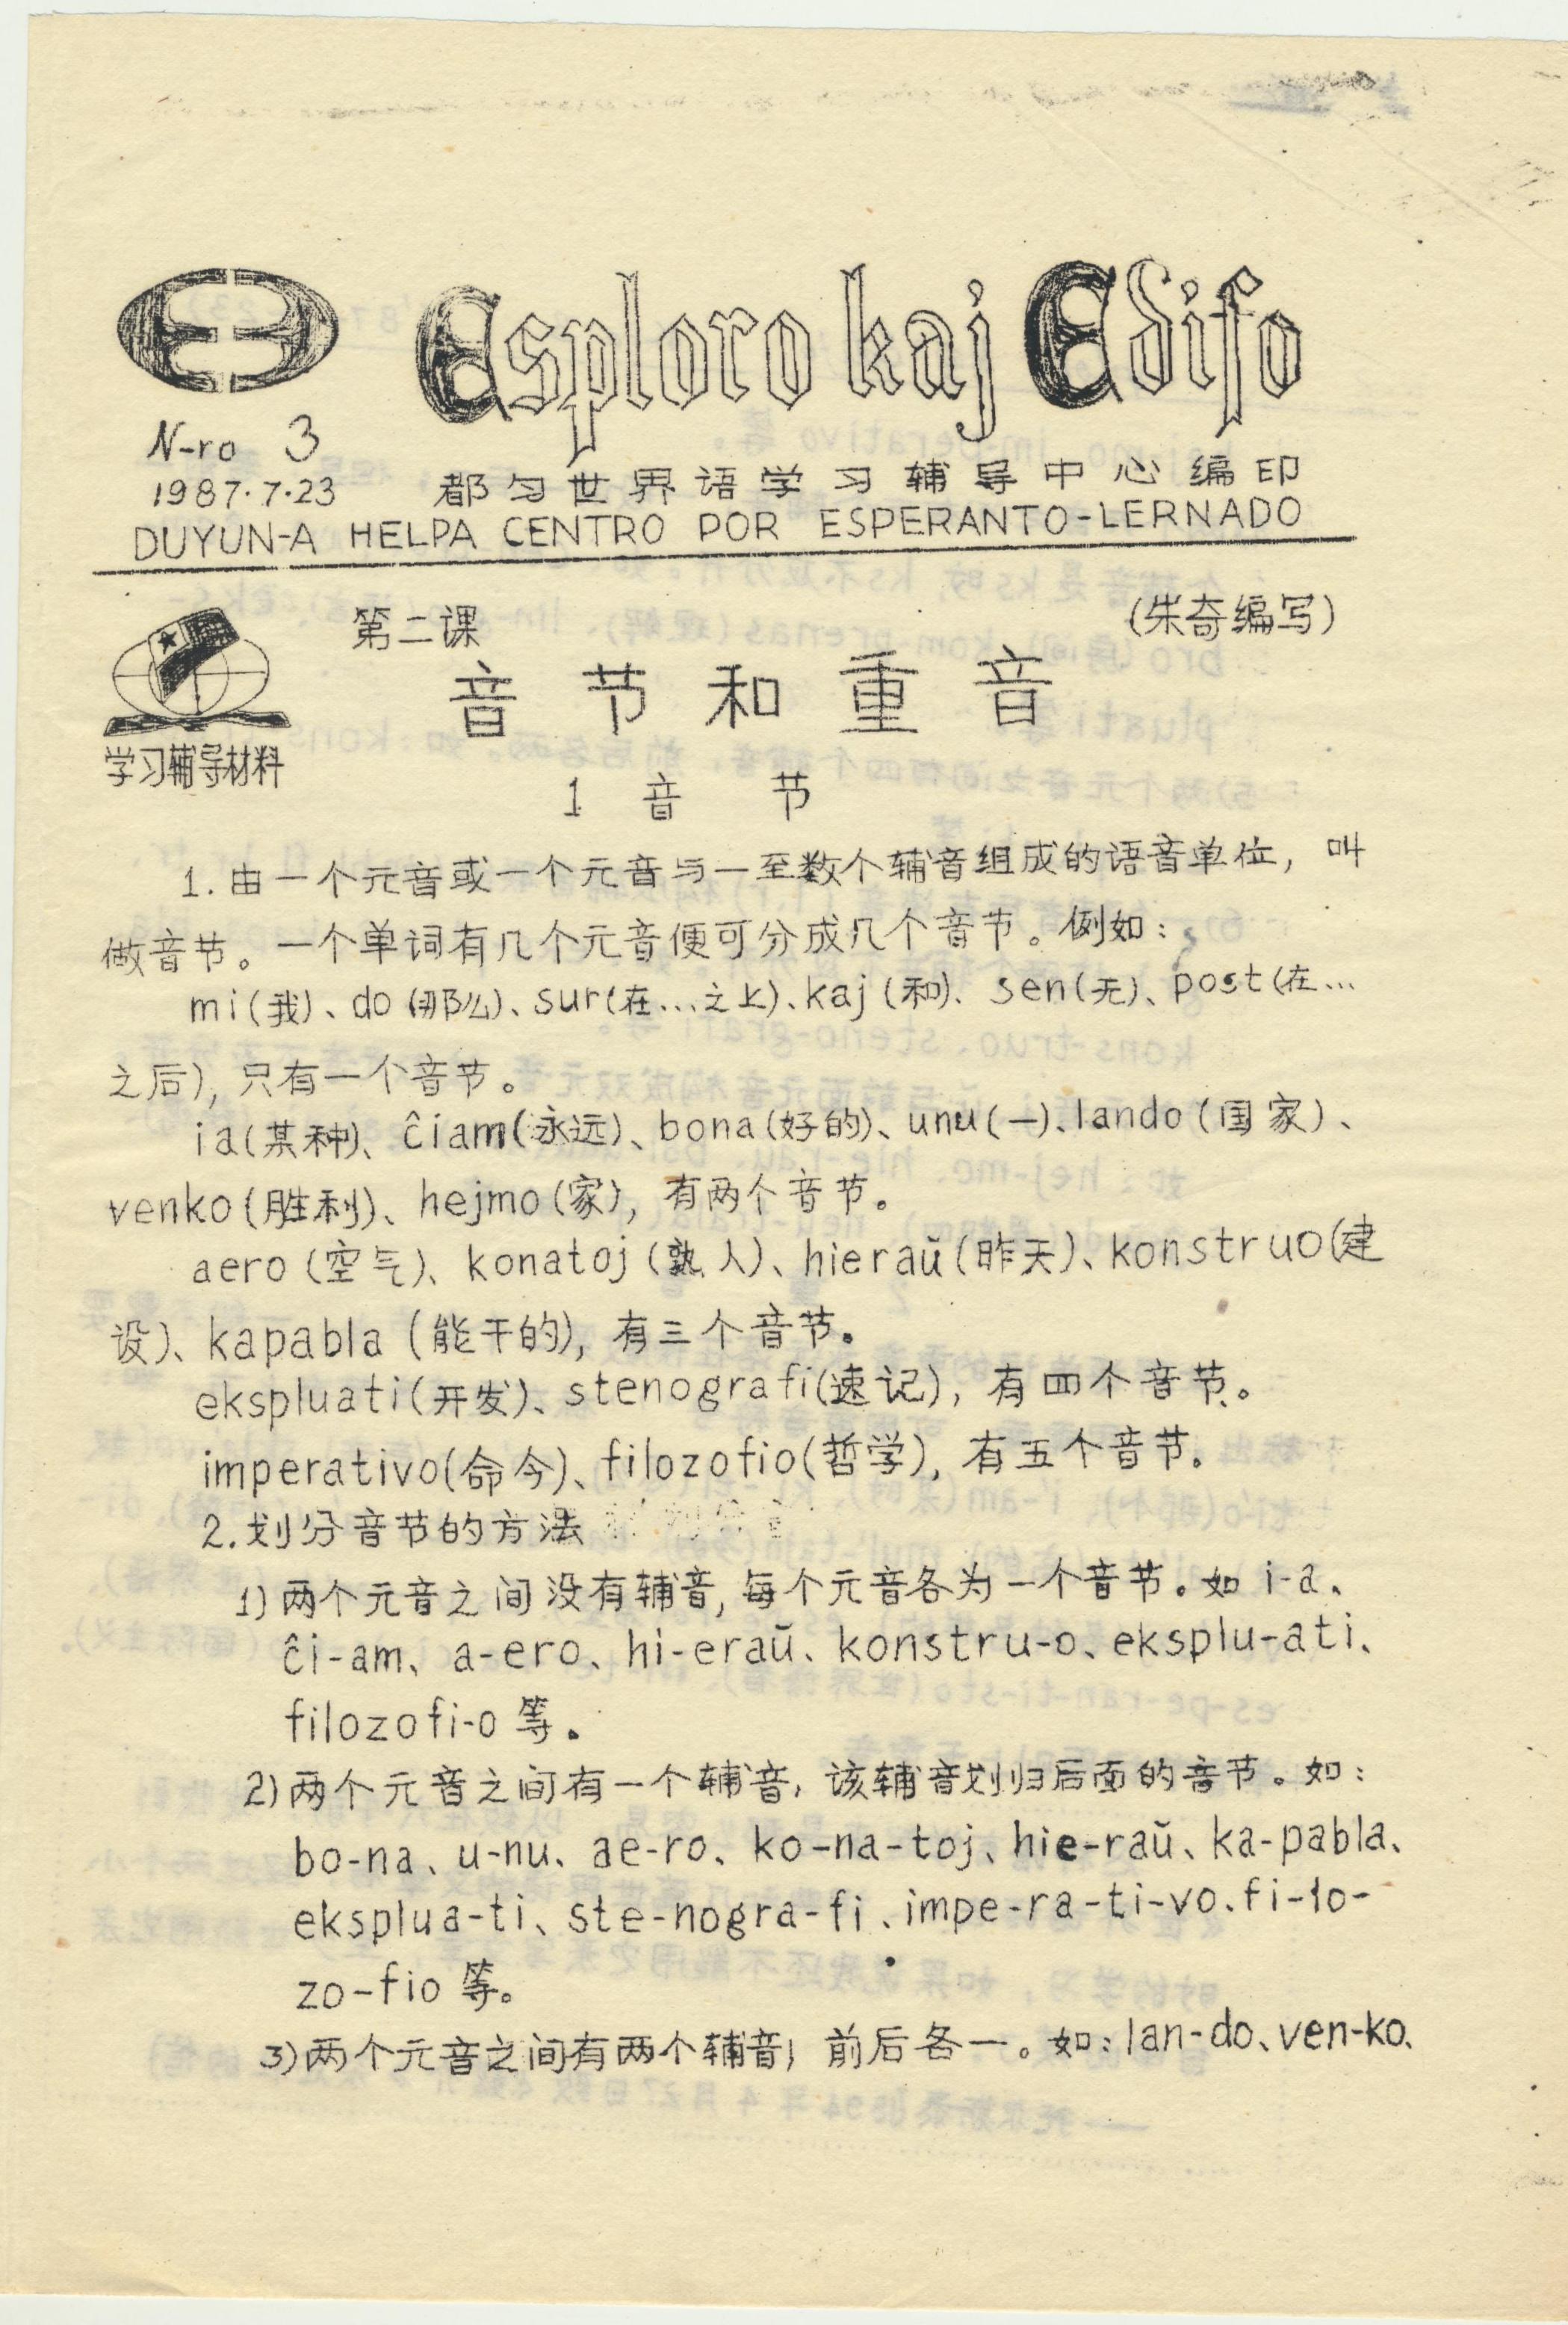 Esploro kaj Edifo
N-ro 3
1987.7.23
都匀世界语学习辅导中心编印
DUYUN-A HELPA CENTRO POR ESPERANTO-LERNADO
第二课
(朱奇编写)
音节和重音
学习辅导材料
1 音 节
1. 由一个元音或一个元音与一至数个辅音组成的语音单位, 叫
做音节。一个单词有几个元音便可分成几个音节。例如:
mi(我)、do(那么)、sur(在…之上)、kaj(和)、sen(无)、post(在…
之后), 只有一个音节。
ia(某种)、ĉiam(永远)、bona(好的)、unu(一)、lando(国家)、
venko(胜利)、hejmo(家), 有两个音节。
aero(空气)、konatoj(熟人)、hieraŭ(昨天)、konstruo(建
设)、kapabla(能干的), 有三个音节。
ekspluati(开发)、stenografi(速记), 有四个音节。
imperativo(命令)、filozofio(哲学), 有五个音节。
2. 划分音节的方法
1) 两个元音之间没有辅音, 每个元音各为一个音节。如 i-a、
ĉi-am、a-ero、hi-eraŭ、konstru-o、eksplu-ati、
filozofi-o 等。
2) 两个元音之间有一个辅音, 该辅音划归后面的音节。如:
bo-na、u-nu、ae-ro、ko-na-toj、hie-raŭ、ka-pabla、
eksplua-ti、ste-nogra-fi、impe-ra-ti-vo、fi-lo-
zo-fio 等。
3) 两个元音之间有两个辅音, 前后各一。如: lan-do、ven-ko、